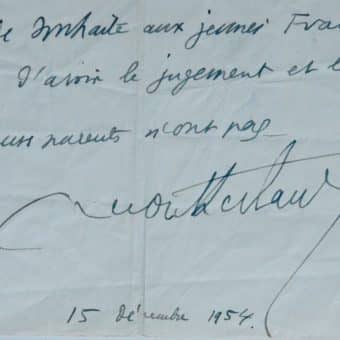 Je souhaite aux jeunes Fra
d'avoir le jugement et l
urs parents n'ont pas
Montherlant
15 décembre 1954.